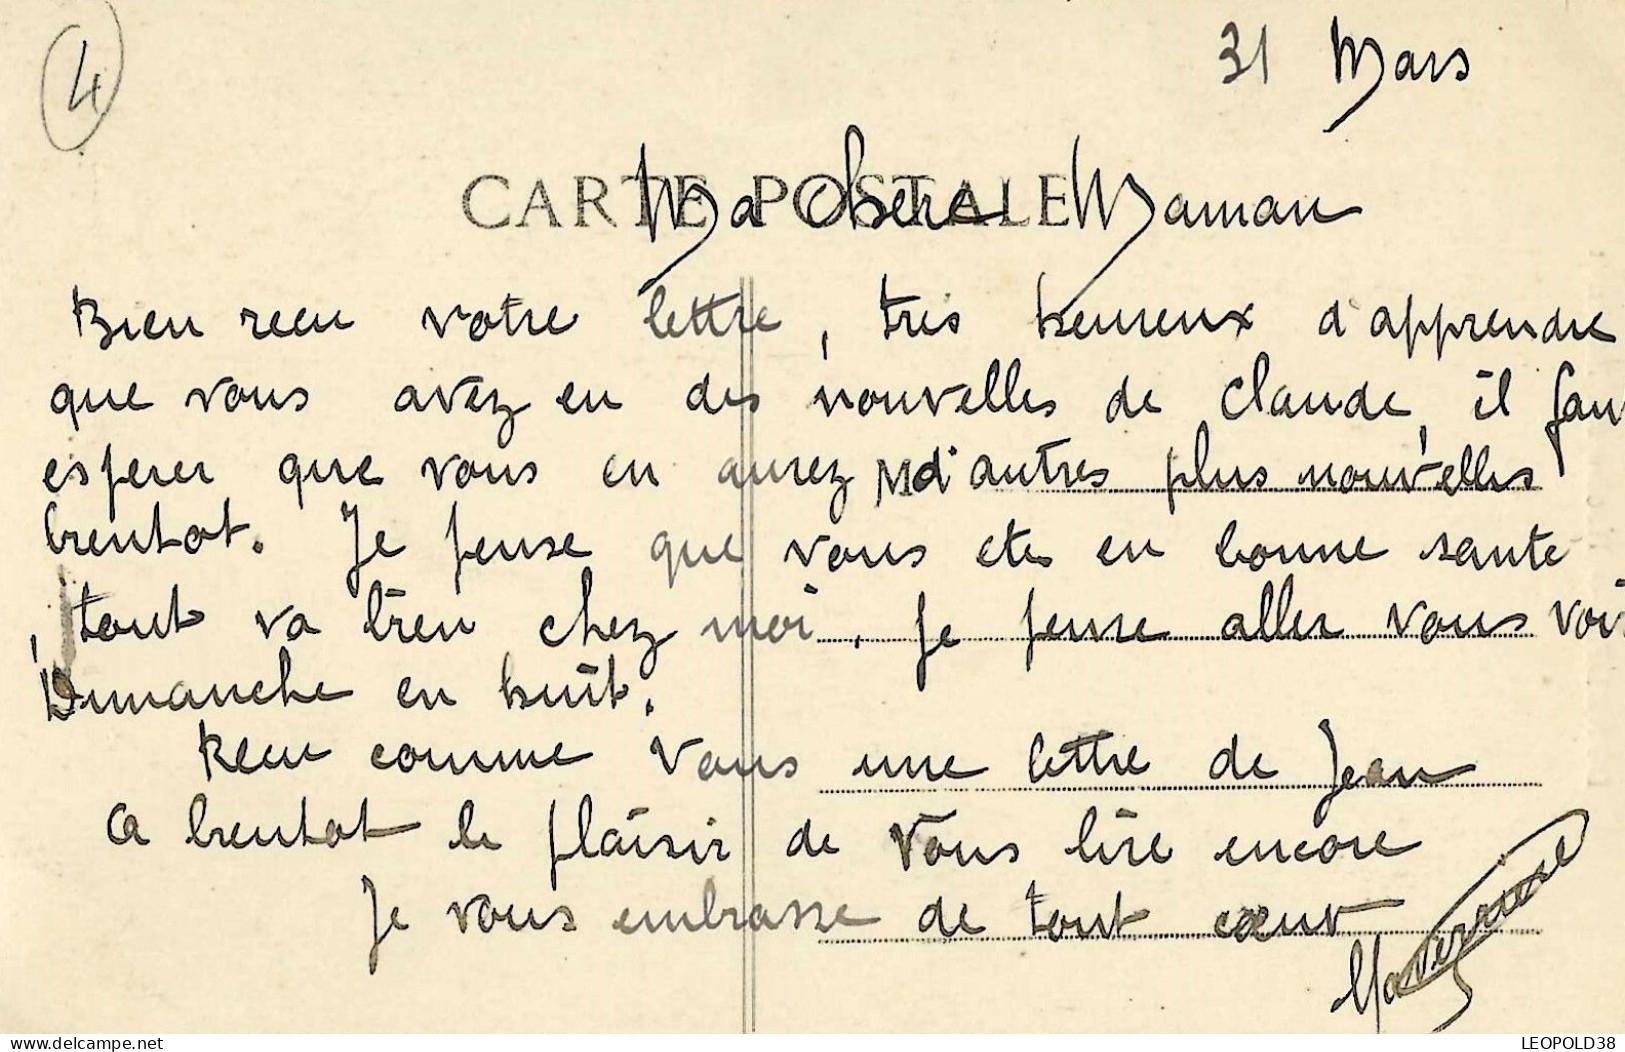 4
31 Mars
CARTE POSTALE
Ma chere Maman
Bien recu votre lettre, très heureux d'apprendre
que vous avez eu des nouvelles de Claude, il fau
esperer que vous en aurez d'autres plus nouvelles
bientot. Je pense que vous etes en bonne sante
, tout va bien chez moi. Je pense aller vous voir
Dimanche en huit.
Recu comme vous une lettre de Jean
A bientot le plaisir de vous lire encore
Je vous embrasse de tout cœur
delcampe.net
LEOPOLD38